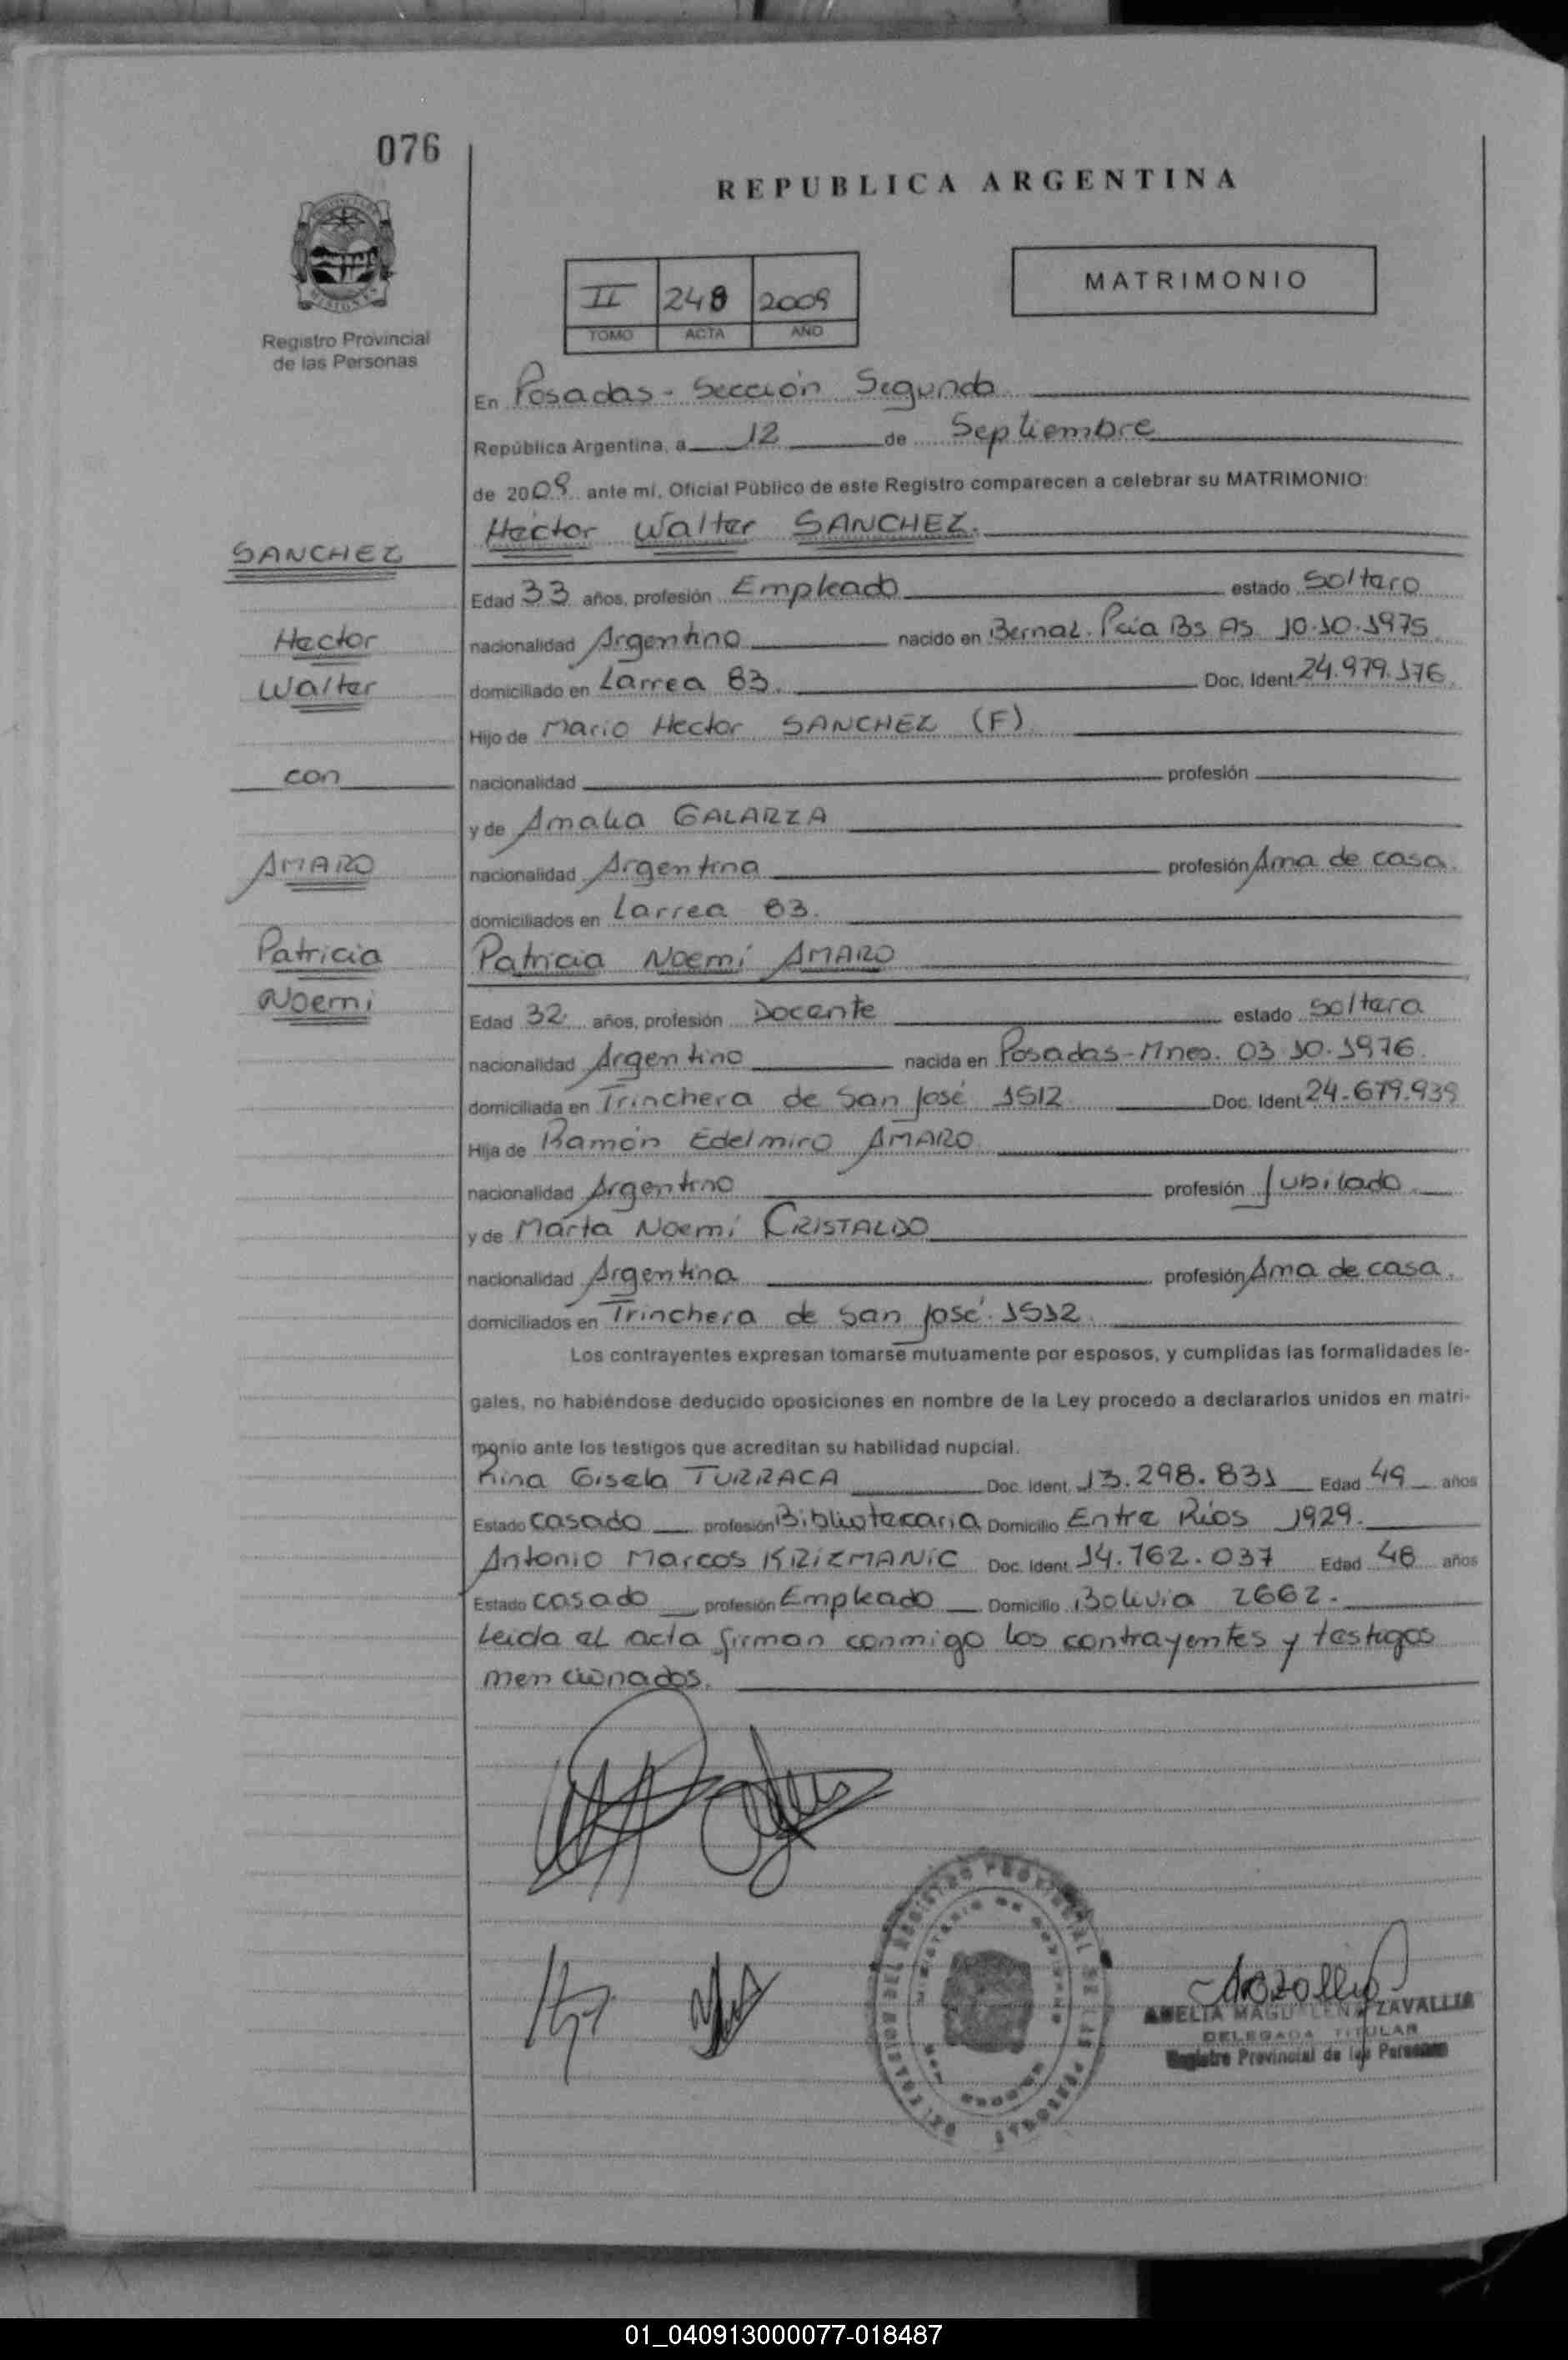 076
REPUBLICA ARGENTINA
MATRIMONIO
II 248 2009
TOMO ACTA AÑO
Registro Provincial
de las Personas
En Posadas - Sección Segunda
República Argentina, a 12 de Septiembre
de 2009 ante mí, Oficial Público de este Registro comparecen a celebrar su MATRIMONIO:
Hector Walter SANCHEZ.
SANCHEZ
Edad 33 años, profesión Empleado estado Soltero
Hector
nacionalidad Argentino nacido en Bernal. Pcia Bs As 10.10.1975
Walter
domiciliado en Larrea 83. Doc. Ident. 24.979.176.
Hijo de Mario Hector SANCHEZ (F)
con
nacionalidad profesión
y de Amalia GALARZA
AMARO
nacionalidad Argentina profesión Ama de casa.
domiciliados en Larrea 83.
Patricia
Patricia Noemí AMARO
Noemi
Edad 32 años, profesión Docente estado Soltera
nacionalidad Argentino nacida en Posadas-Mnes. 03.10.1976.
domiciliada en Trinchera de San José 1512 Doc. Ident. 24.679.939
Hija de Ramón Edelmiro AMARO
nacionalidad Argentino profesión Jubilado.
y de Marta Noemí CRISTALDO
nacionalidad Argentina profesión Ama de casa.
domiciliados en Trinchera de San José 1512.
Los contrayentes expresan tomarse mutuamente por esposos, y cumplidas las formalidades le-
gales, no habiéndose deducido oposiciones en nombre de la Ley procedo a declararlos unidos en matri-
monio ante los testigos que acreditan su habilidad nupcial.
Rina Gisela TURRACA Doc. Ident. 13.298.831 Edad 49 años
Estado casado profesión Bibliotecaria Domicilio Entre Ríos 1929.
Antonio Marcos KRIZMANIC Doc. Ident. 14.762.037 Edad 48 años
Estado casado profesión Empleado Domicilio Bolivia 2662.
Leida el acta firman conmigo los contrayentes y testigos
mencionados.
ZAVALLIA
DELEGADA TITULAR
Registro Provincial de las Personas
01_040913000077-018487